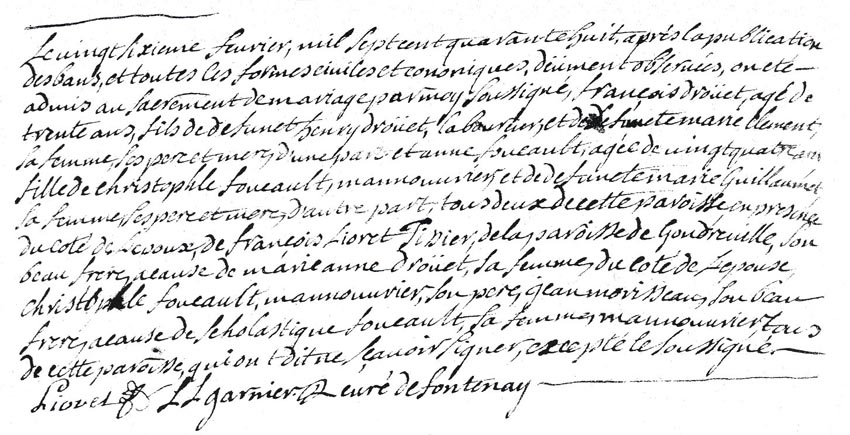 Le vingt sixieme fevrier, mil sept cent quarante huit, après la publication
des bans, et toutes les formes civiles et canoniques, düement observées, on eté
admis au sacrement de mariage par moy soussigné, françois droüet, agé de
trente ans, fils de defunct henry droüet, laboureur, et de defuncte marie clement,
sa femme, ses pere et mere, d'une part et anne foucault, agée de vingt quatre ans
fille de christophle foucault, mannouvrier, et de defuncte marie Guillaumet
sa femme, ses pere et mere, d'autre part, tous deux de cette paroisse en presence
du coté de Lepoux, de françois Lioret Tixier, de la paroisse de Gondreville, son
beau frere, acause de marie anne droüet, sa femme, du coté de Lepouse,
christophle foucault, mannouvrier, son pere, jean morisseau, son beau
frere, acause de scholastique foucault, sa femme, mannouvrier tous
de cette paroisse, qui on t dit ne sçavoir signer, excepté le soussigné.
Lioret LL garnier curé de fontenay